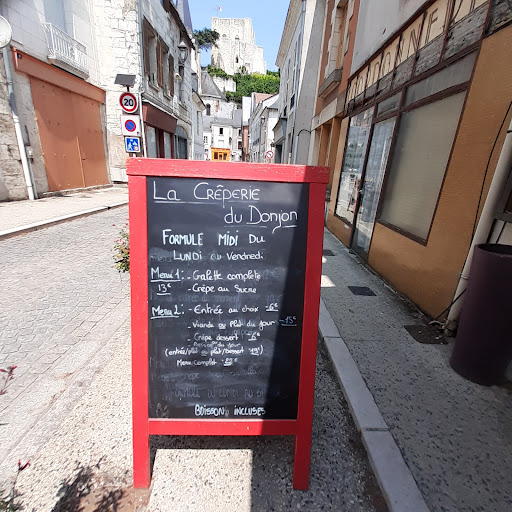 La Crêperie
du Donjon
Formule Midi du
Lundi au Vendredi
Menu 1: - Galette complète
13€ - Crêpe au Sucre
Menu 2: - Entrée au choix -6€
- Viande ou plat du jour -15€
- Crêpe dessert -6€
(entrée/plat ou plat/dessert
Menu Complet
Boisson incluses
20